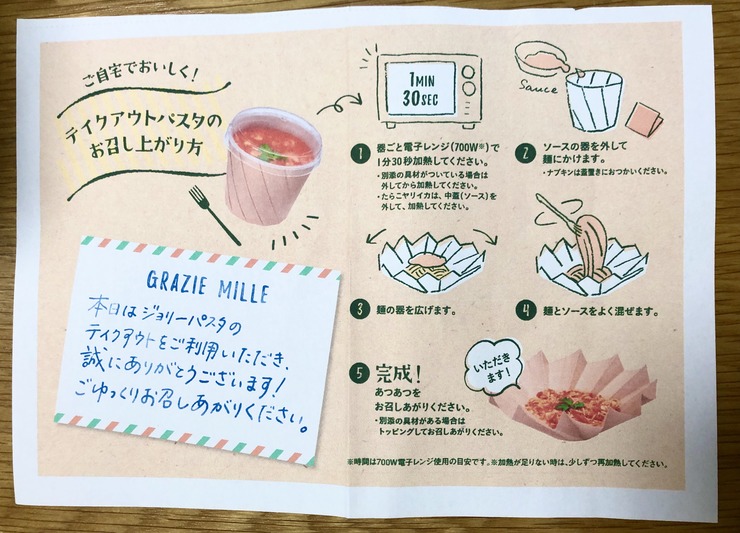 ご自宅でおいしく!
テイクアウトパスタの
お召し上がり方
GRAZIE MILLE
本日はジョリーパスタの
テイクアウトをご利用いただき、
誠にありがとうございます!
ごゆっくりお召しあがりください。
1MIN
30SEC
1 器ごと電子レンジ(700W※)で
1分30秒加熱してください。
・別添の具材がついている場合は
外してから加熱してください。
・たらこヤリイカは、中蓋(ソース)を
外して、加熱してください。
Sauce
2 ソースの器を外して
麺にかけます。
・ナプキンは蓋置きにおつかいください。
3 麺の器を広げます。
4 麺とソースをよく混ぜます。
5 完成!
あつあつを
お召しあがりください。
・別添の具材がある場合は
トッピングしてお召しあがりください。
いただき
ます!
※時間は700W電子レンジ使用の目安です。※加熱が足りない時は、少しずつ再加熱してください。